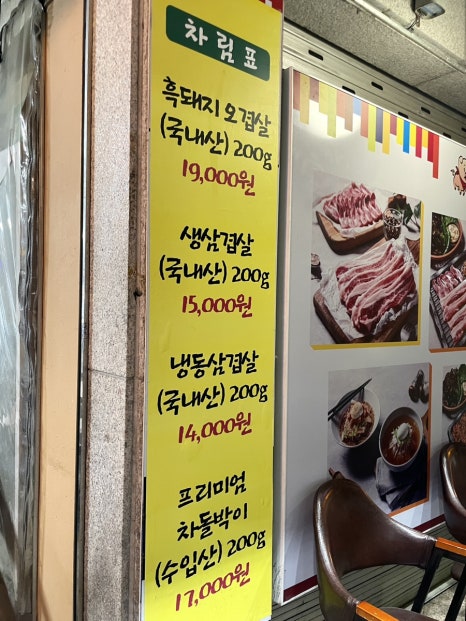 차림표
흑돼지 오겹살
(국내산) 200g
19,000원
생삼겹살
(국내산) 200g
15,000원
냉동삼겹살
(국내산) 200g
14,000원
프리미엄
차돌박이
(수입산) 200g
17,000원